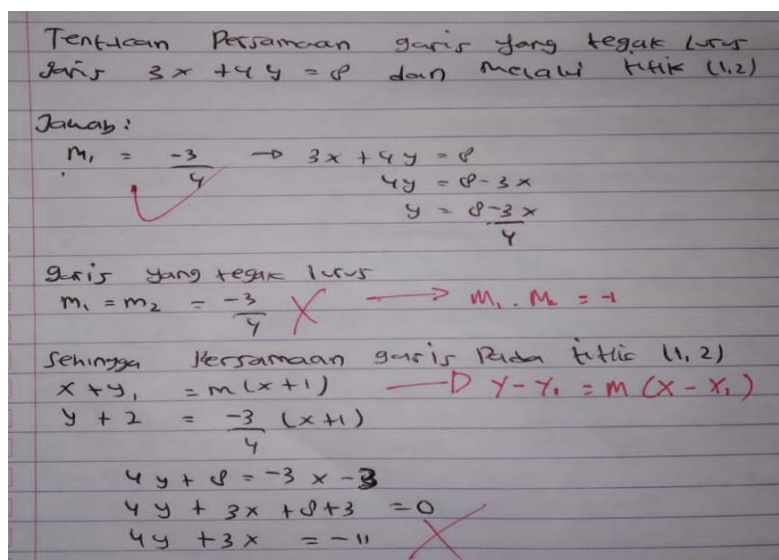 Tentukan Persamaan garis yang tegak lurus
garis 3x + 4y = 8 dan melalui titik (1,2)
Jawab:
m₁ = -3/4 → 3x + 4y = 8
4y = 8 - 3x
y = 8-3x/4
garis yang tegak lurus
m₁ = m₂ = -3/4 → m₁ . m₂ = -1
Sehingga Persamaan garis Pada titik (1,2)
x + y₁ = m(x+1) → y - y₁ = m (x - x₁)
y + 2 = -3/4 (x+1)
4y + 8 = -3x - 3
4y + 3x + 8 + 3 = 0
4y + 3x = -11